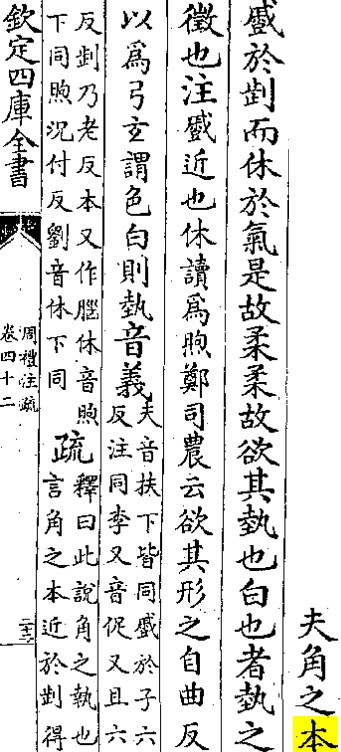 夫角之本
蹙於㓽而休於氣是故柔柔故欲其埶也白也者埶之
徵也注蹙近也休讀爲煦鄭司農云欲其形之自曲反
以爲弓玄謂色白則埶音義夫音扶下皆同蹙於子六
反注同李又音促又且六
反㓽乃老反本又作腦休音煦
下同煦況付反劉音休下同
疏釋曰此說角之埶也
言角之本近於㓽得
欽定四庫全書
周禮注疏
卷四十二
二十三